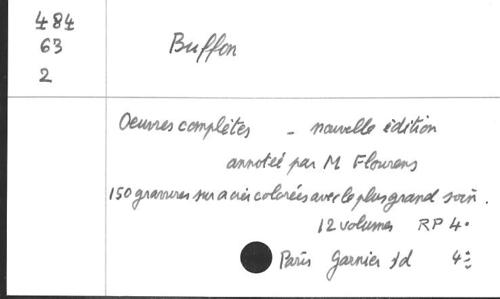 484
63
2
Buffon
Oeuvres complètes - nouvelle édition
annotée par M Flourens
150 gravures sur acier coloriées avec le plus grand soin.
12 volumes RP 4.
Paris Garnier s/d 4